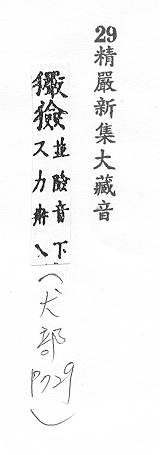 29精嚴新集大藏音
玁獫
並險音下
又力冉丶
(犬部 P729)